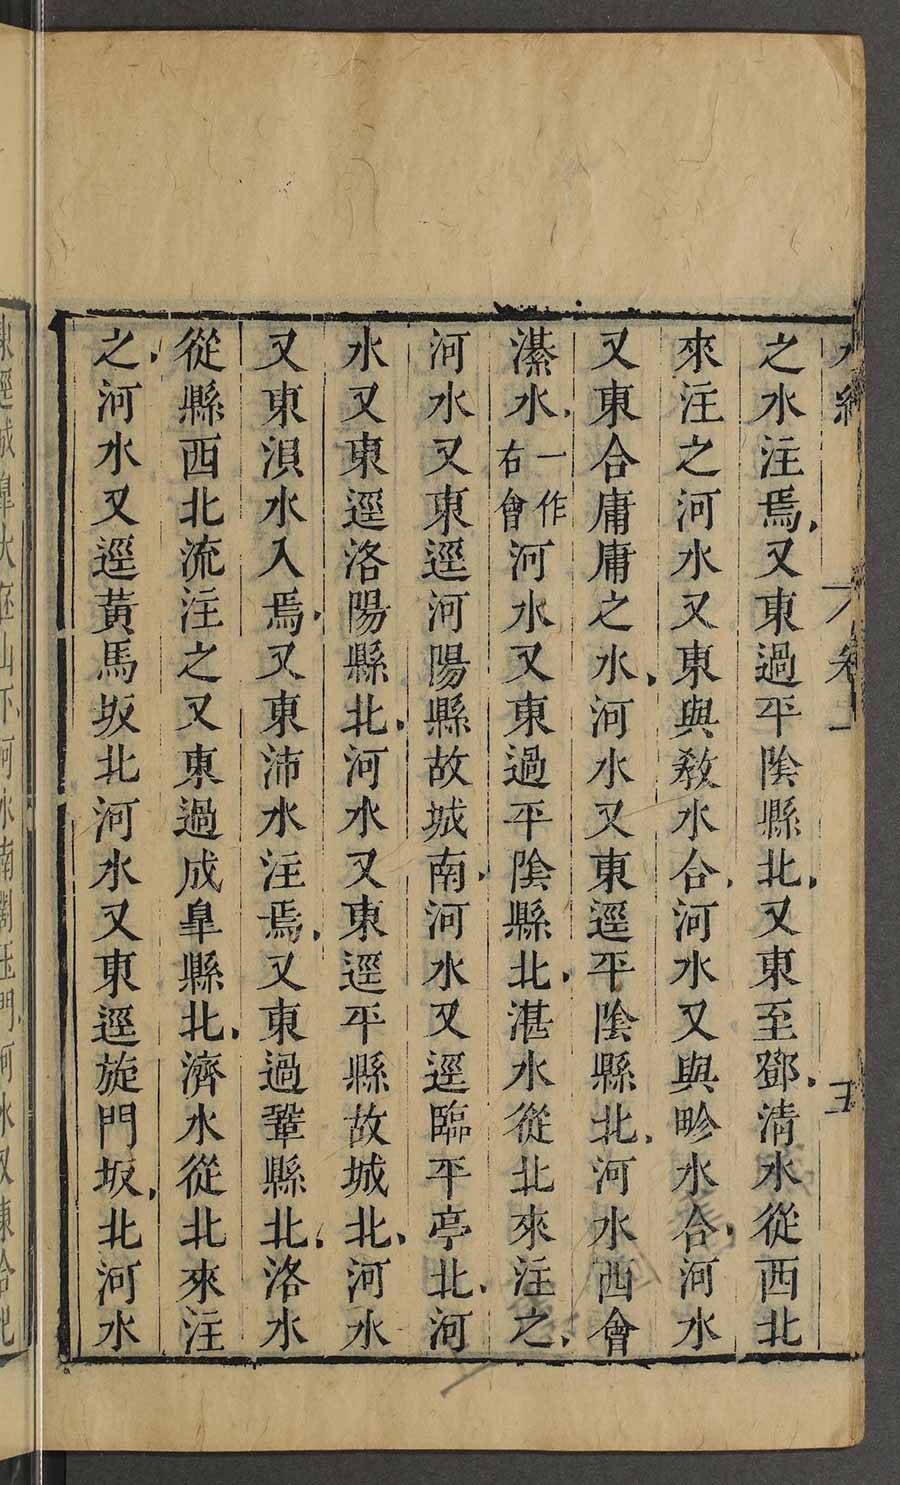 水經 卷一 五
之水注焉又東過平陰縣北又東至鄧清水從西北
來注之河水又東與教水合河水又與畛水合河水
又東合庸庸之水河水又東逕平陰縣北河水西會
瀿水一作右會河水又東過平陰縣北湛水從北來注之
河水又東逕河陽縣故城南河水又逕臨平亭北河
水又東逕洛陽縣北河水又東逕平縣故城北河水
又東湨水入焉又東沛水注焉又東過鞏縣北洛水
從縣西北流注之又東過成臯縣北濟水從北來注
之河水又逕黃馬坂北河水又東逕旋門坂北河水